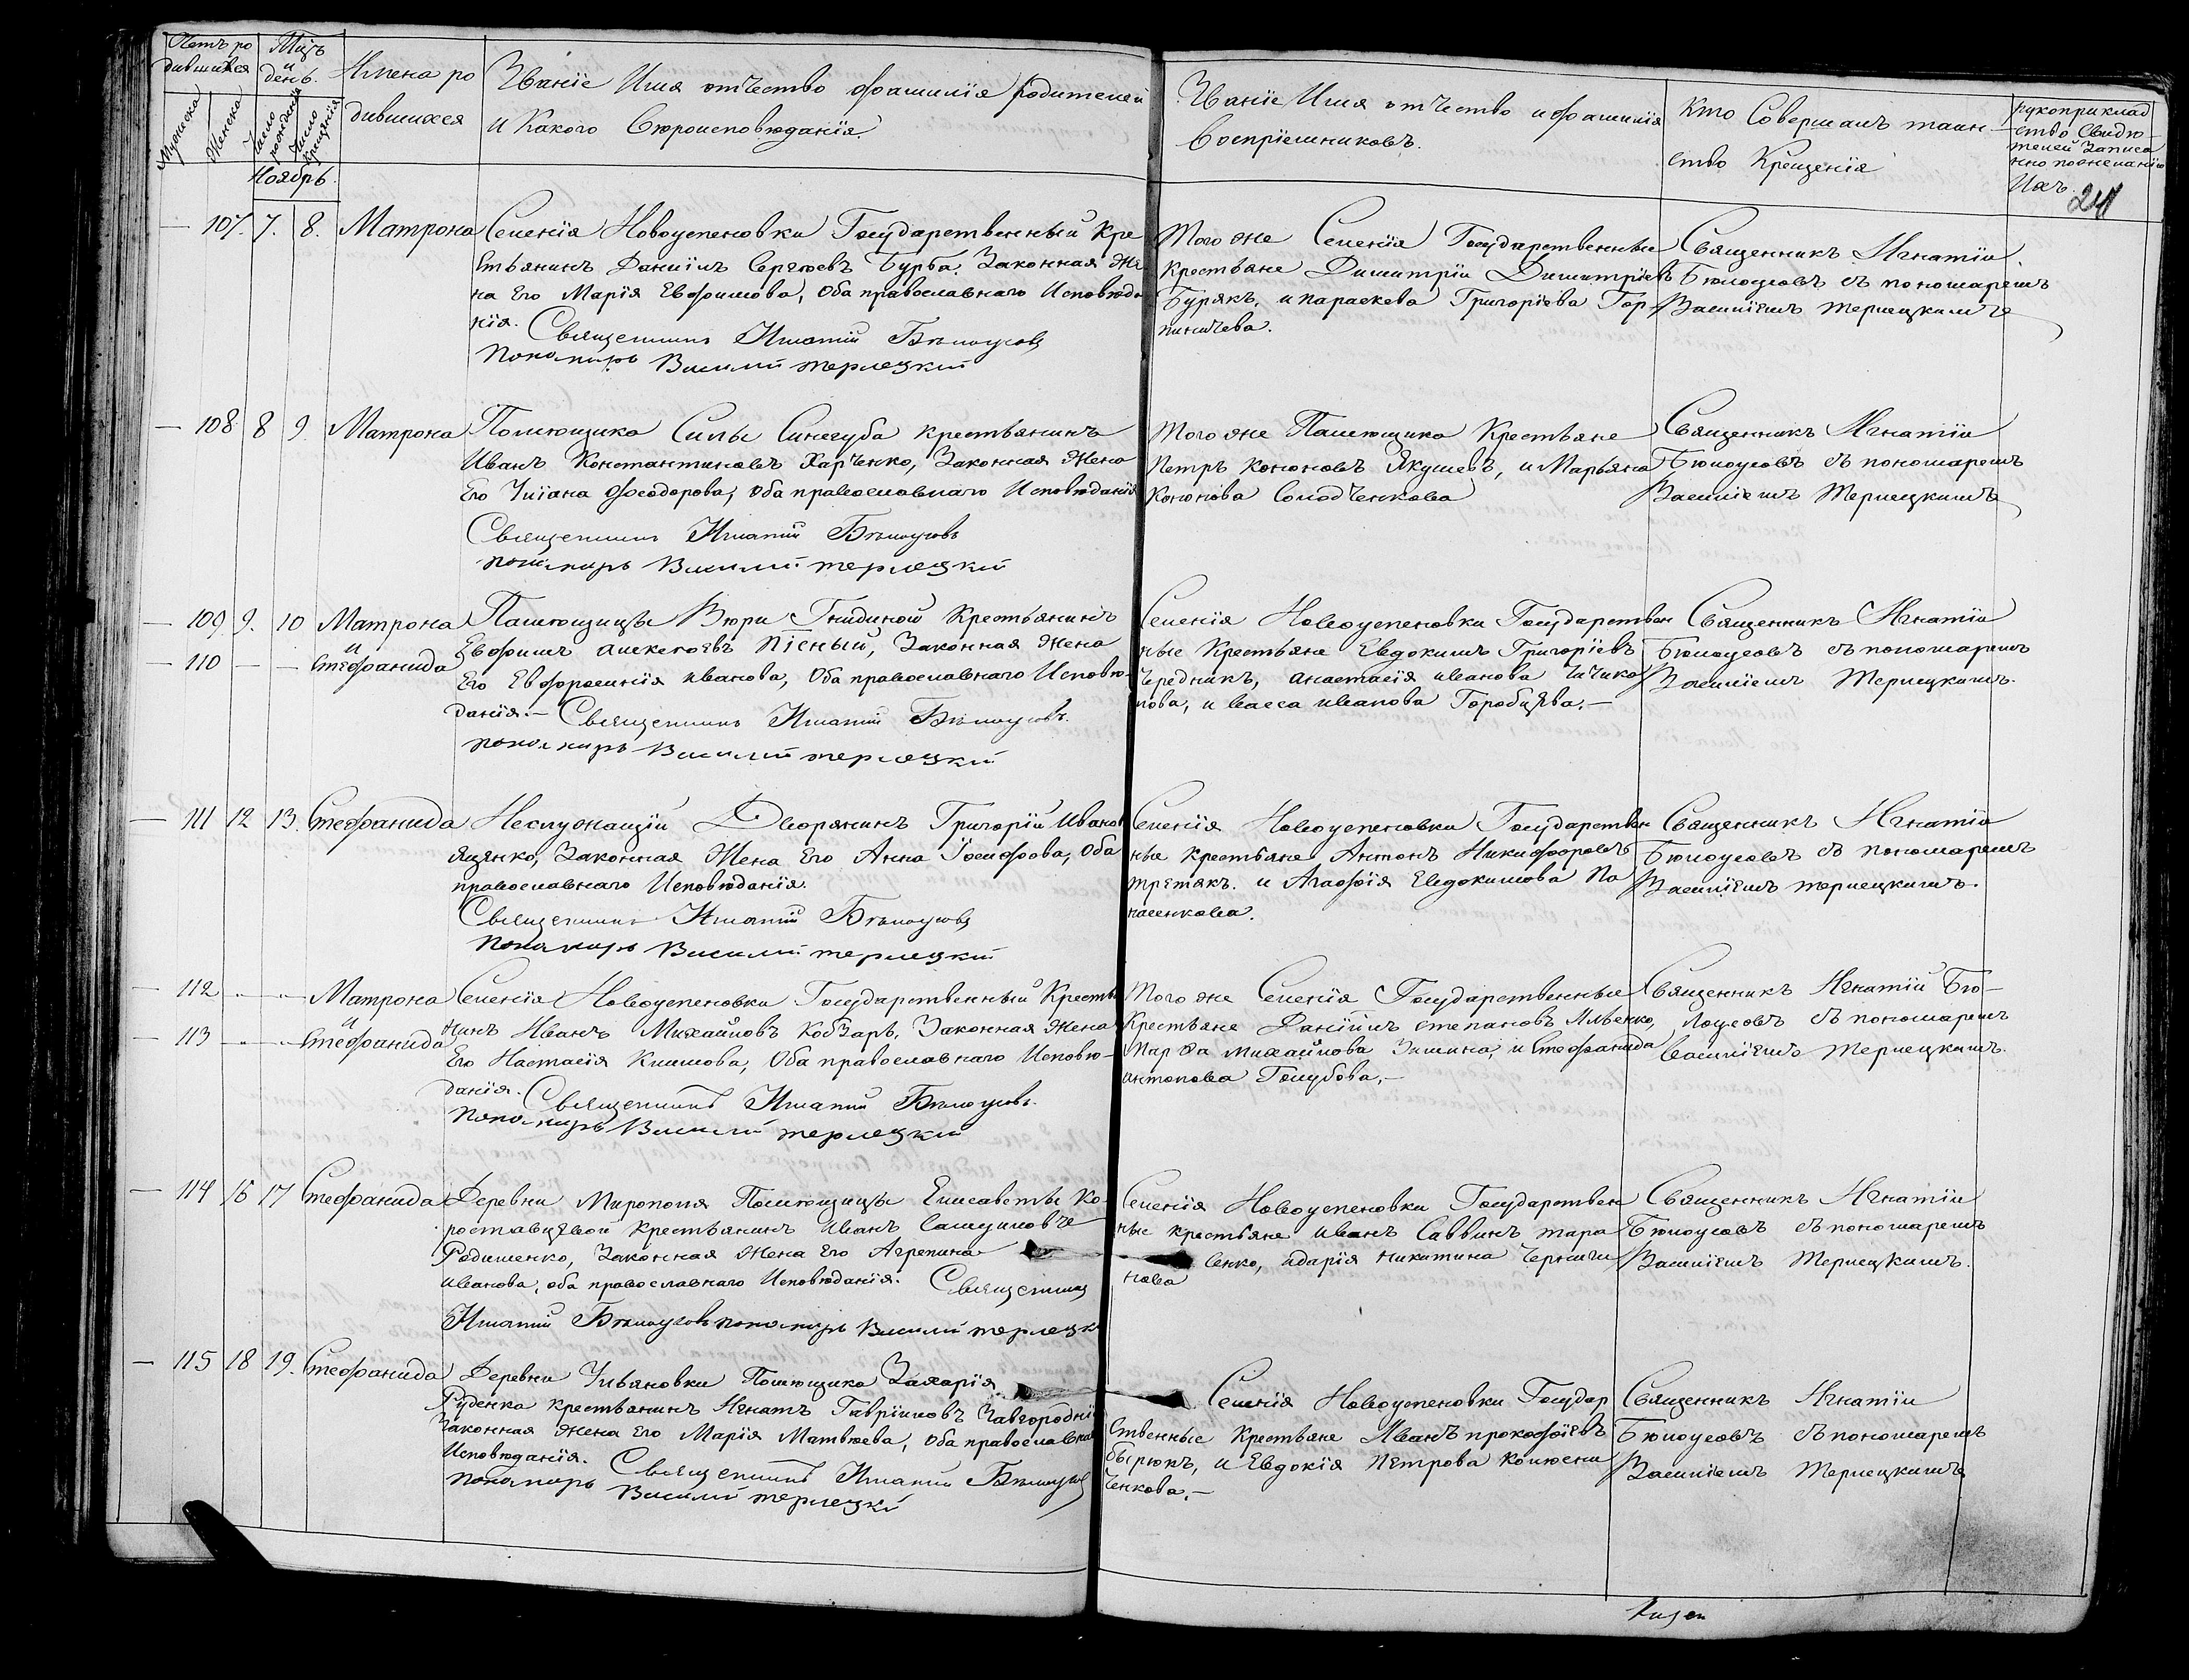 Счетъ ро
дившихся
Мужеска
Женска
Мѣцъ
и
день.
Число рожденія
Число крещенія
Ноябрь.
Имена ро
дившихся
Званіе Имя отчество фамилія родителей
и Какого Вѣроисповѣданія
Званіе Имя отчество и фамилія
Воспріемниковъ.
Кто Совершалъ таин-
ство Крещенія
Рукоприклад
ство Свидѣ-
телей Записа
нно по желанію
Ихъ.
241
107. 7. 8. Матрона
Селенія Новоуспеновки Государственный Кре
стьянинъ Даніилъ Сергѣевъ Бурба. Законная Же
на Его Марія Евфимова, Оба православнаго Исповѣда
нія. Священникъ Игнатій Бѣлоусовъ
Пономарь Василій Терлецкій
Того же Селенія Государственные
Крестьяне Димитрій Димитріевъ
Бурякъ, и параскева Григоріева Гор-
пиничева.
Священникъ Игнатій
Бѣлоусовъ съ пономаремъ
Василіемъ Терлецкимъ
108 8 9. Матрона
Помѣщика Силы Синегуба крестьянинъ
Иванъ Константиновъ Харченко, Законная Жена
Его Уліана Ѳеодорова, Оба православнаго Исповѣданія
Священникъ Игнатій Бѣлоусовъ
пономарь Василій Терлецкій
Того же Помѣщика Крестьяне
Петръ Кононовъ Якушевъ, и Марьяна
Кононова Солодченкова
Священникъ Игнатій
Бѣлоусовъ съ пономаремъ
Василіемъ Терлецкимъ
109 9. 10 Матрона
и
110 — — Стефанида
Помѣщицы Вѣры Гнидиной Крестьянинъ
Евфимъ алексѣевъ Пісный, Законная Жена
Его Евфросинія иванова, Оба православнаго Исповѣ-
данія.— Священникъ Игнатій Бѣлоусовъ.
пономарь Василій терлецкій
Селенія Новоуспеновки Государствен
ные Крестьяне Евдокимъ Григоріевъ
Чередникъ, анастасія иванова Чичико
нова, и васса иванова Горобцева.—
Священникъ Игнатій
Бѣлоусовъ съ пономаремъ
Василіемъ Терлецкимъ.
111 12 13. Стефанида
Неслужащій Дворянинъ Григорій Иванов
Яценко, Законная Жена Его Анна Іосифова, Оба
православнаго Исповѣданія.
Священникъ Игнатій Бѣлоусовъ
Пономарь Василій терлецкій
Селенія Новоуспеновки Государствен
ные крестьяне Антонъ Никифоровъ
третякъ. и Агафія Евдокимова Па
насенкова.
Священникъ Игнатій
Бѣлоусовъ съ пономаремъ
Василіемъ терлецкимъ.
112 „ „ Матрона
и
113 „ „ Стефанида
Селенія Новоуспеновки Государственный Крестья
нинъ Иванъ Михайловъ Кобзарь, Законная жена
Его Настасія Климова, Оба православнаго Исповѣ-
данія. Священникъ Игнатій Бѣлоусовъ.
Пономарь Василій терлецкій
Того же Селенія Государственные
Крестьяне Даніилъ степановъ Ильенко,
Марѳа михайлова Зимина, и Стефанида
антонова Голубова.—
Священникъ Игнатій Бѣ-
лоусовъ съ пономаремъ
василіемъ Терлецкимъ.
114 16 17 Стефанида
Деревни Мирополя Помѣщицы Елисаветы Ко-
роставцевой крестьянинъ Иванъ Самуиловъ
Радишенко, Законная Жена Его Агрепина
иванова, оба православнаго Исповѣданія. Священникъ
Игнатій Бѣлоусовъ пономарь Василій терлецк
Селенія Новоуспеновки Государствен
ные крестьяне иванъ Саввинъ тара
сенко, идарія никитина Чернични
нова
Священникъ Игнатій
Бѣлоусовъ съ пономаремъ
Василіемъ Терлецкимъ.
115 18 19. Стефанида
Деревни Ульяновки Помѣщика Захарія
Руденка крестьянинъ Игнатъ Гавріиловъ Завгородній
Законная Жена Его Марія Матвѣева, Оба православнаго
Исповѣданія. Священникъ Игнатій Бѣлоусовъ
пономарь Василій терлецкій
Селенія Новоуспеновки Государ
ственные Крестьяне Иванъ прокофіевъ
бырюкъ, и Евдокія Петрова Колѣсни
ченкова.—
Священникъ Игнатій
Бѣлоусовъ съ пономаремъ
Василіемъ Терлецкимъ